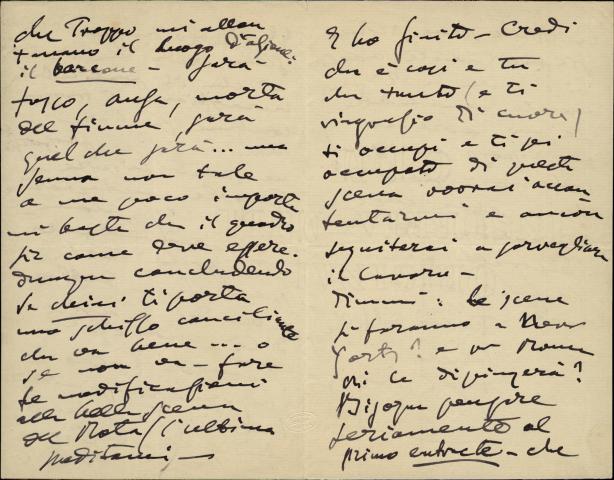 che Troppo mi allon
tanano il luogo d'azione:
il barcone — sarà
fosso, ansa, morta
del fiume sarà
quel che sarà... ma
Senna non tale
a me poco importa
mi basta che il quadro
sia come deve essere.
dunque concludendo
Se ti porta
uno schizzo conciliante
che va bene... o
se non va — fare
le modificazioni
alla bella scena
del Rota (l'ultima
E ho finito — Credi
che è così e tu
che tanto (e ti
ringrazio di cuore)
ti occupi e ti sei
occupato di questa
scena vorrai accon
tentarmi e ancora
seguiterai a sorvegliare
il lavoro —
Dimmi: le scene
si faranno a New
York? e a Roma
chi le dipingerà?
Bisogna pensare
seriamente al
primo entracte — che